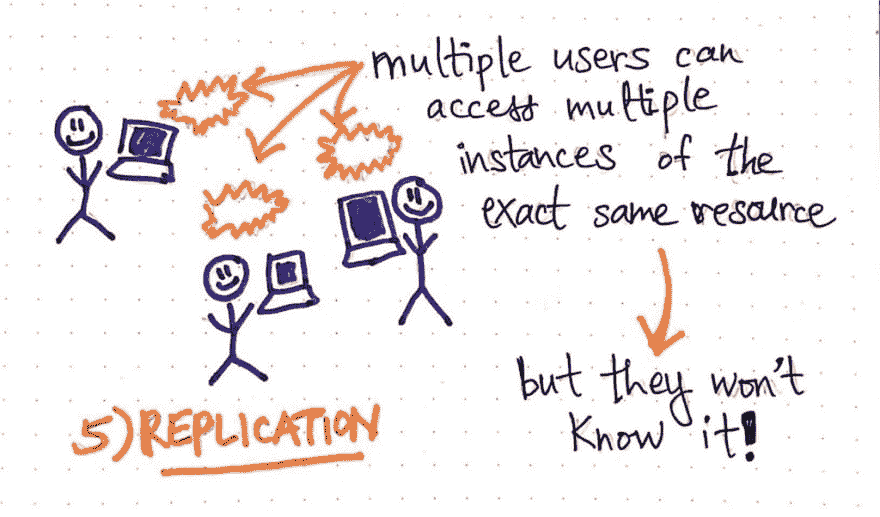 multiple users can
access multiple
instances of the
exact same resource
but they won't
know it!
5) REPLICATION